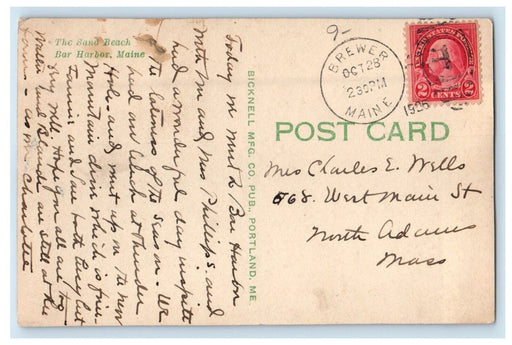 The Sand Beach
Bar Harbor, Maine
Today we went to Bar Harbor
with Mr and Mrs Phillips. and
had a wonderful day inspite
the lateness of the season. We
had our lunch at Thunder
Hole and went up on the new
Mountain drive which is fine.
Fannie and I are both tired but
very well. Hope you all are too.
and are still at the
as Charlotte
BICKNELL MFG. CO. PUB., PORTLAND, ME
9-
BREWER
OCT 28
2 30 PM
MAINE
UNITED STATES POSTAGE
2 CENTS 2
POST CARD
Mrs Charles E. Wells
568. West Main St
North Adams
Mass